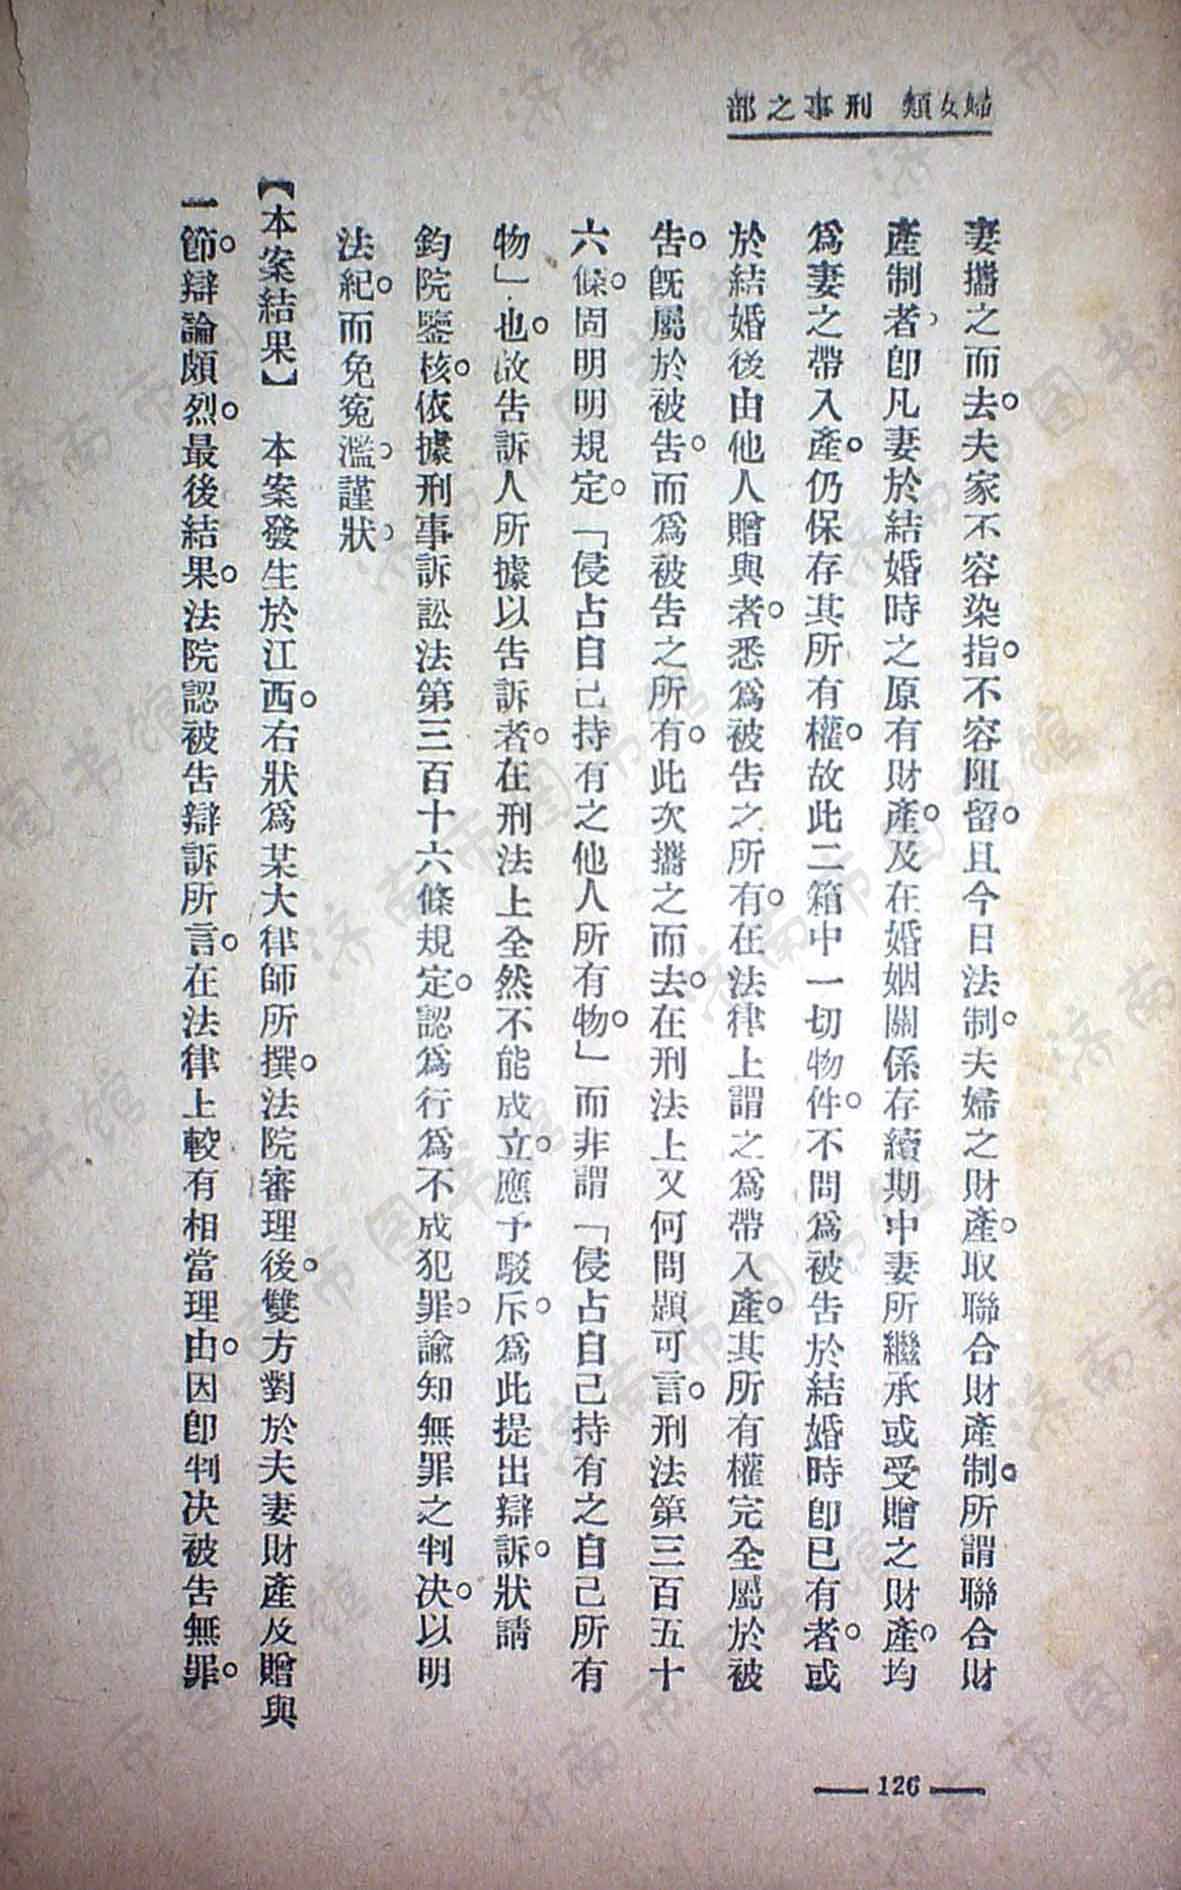 婦女類 刑事之部
妻攜之而去。夫家不容染指。不容阻留。且今日法制。夫婦之財產。取聯合財產制。所謂聯合財
產制者。卽凡妻於結婚時之原有財產。及在婚姻關係存續期中妻所繼承或受贈之財產。均
爲妻之帶入產。仍保存其所有權。故此二箱中一切物件。不問爲被告於結婚時卽已有者。或
於結婚後由他人贈與者。悉爲被告之所有。在法律上謂之爲帶入產。其所有權完全屬於被
告。旣屬於被告。而爲被告之所有。此次攜之而去。在刑法上又何問題可言。刑法第三百五十
六條。固明明規定。「侵占自己持有之他人所有物。」而非謂「侵占自己持有之自己所有
物」也。故告訴人所據以告訴者。在刑法上全然不能成立。應予駁斥。爲此提出辯訴。狀請
鈞院鑒核。依據刑事訴訟法第三百十六條規定。認爲行爲不成犯罪。諭知無罪之判決。以明
法紀。而免寃濫。謹狀。
【本案結果】 本案發生於江西。右狀爲某大律師所撰。法院審理後。雙方對於夫妻財產及贈與
一節。辯論頗烈。最後結果。法院認被告辯訴所言。在法律上較有相當理由。因卽判決被告無罪。
126